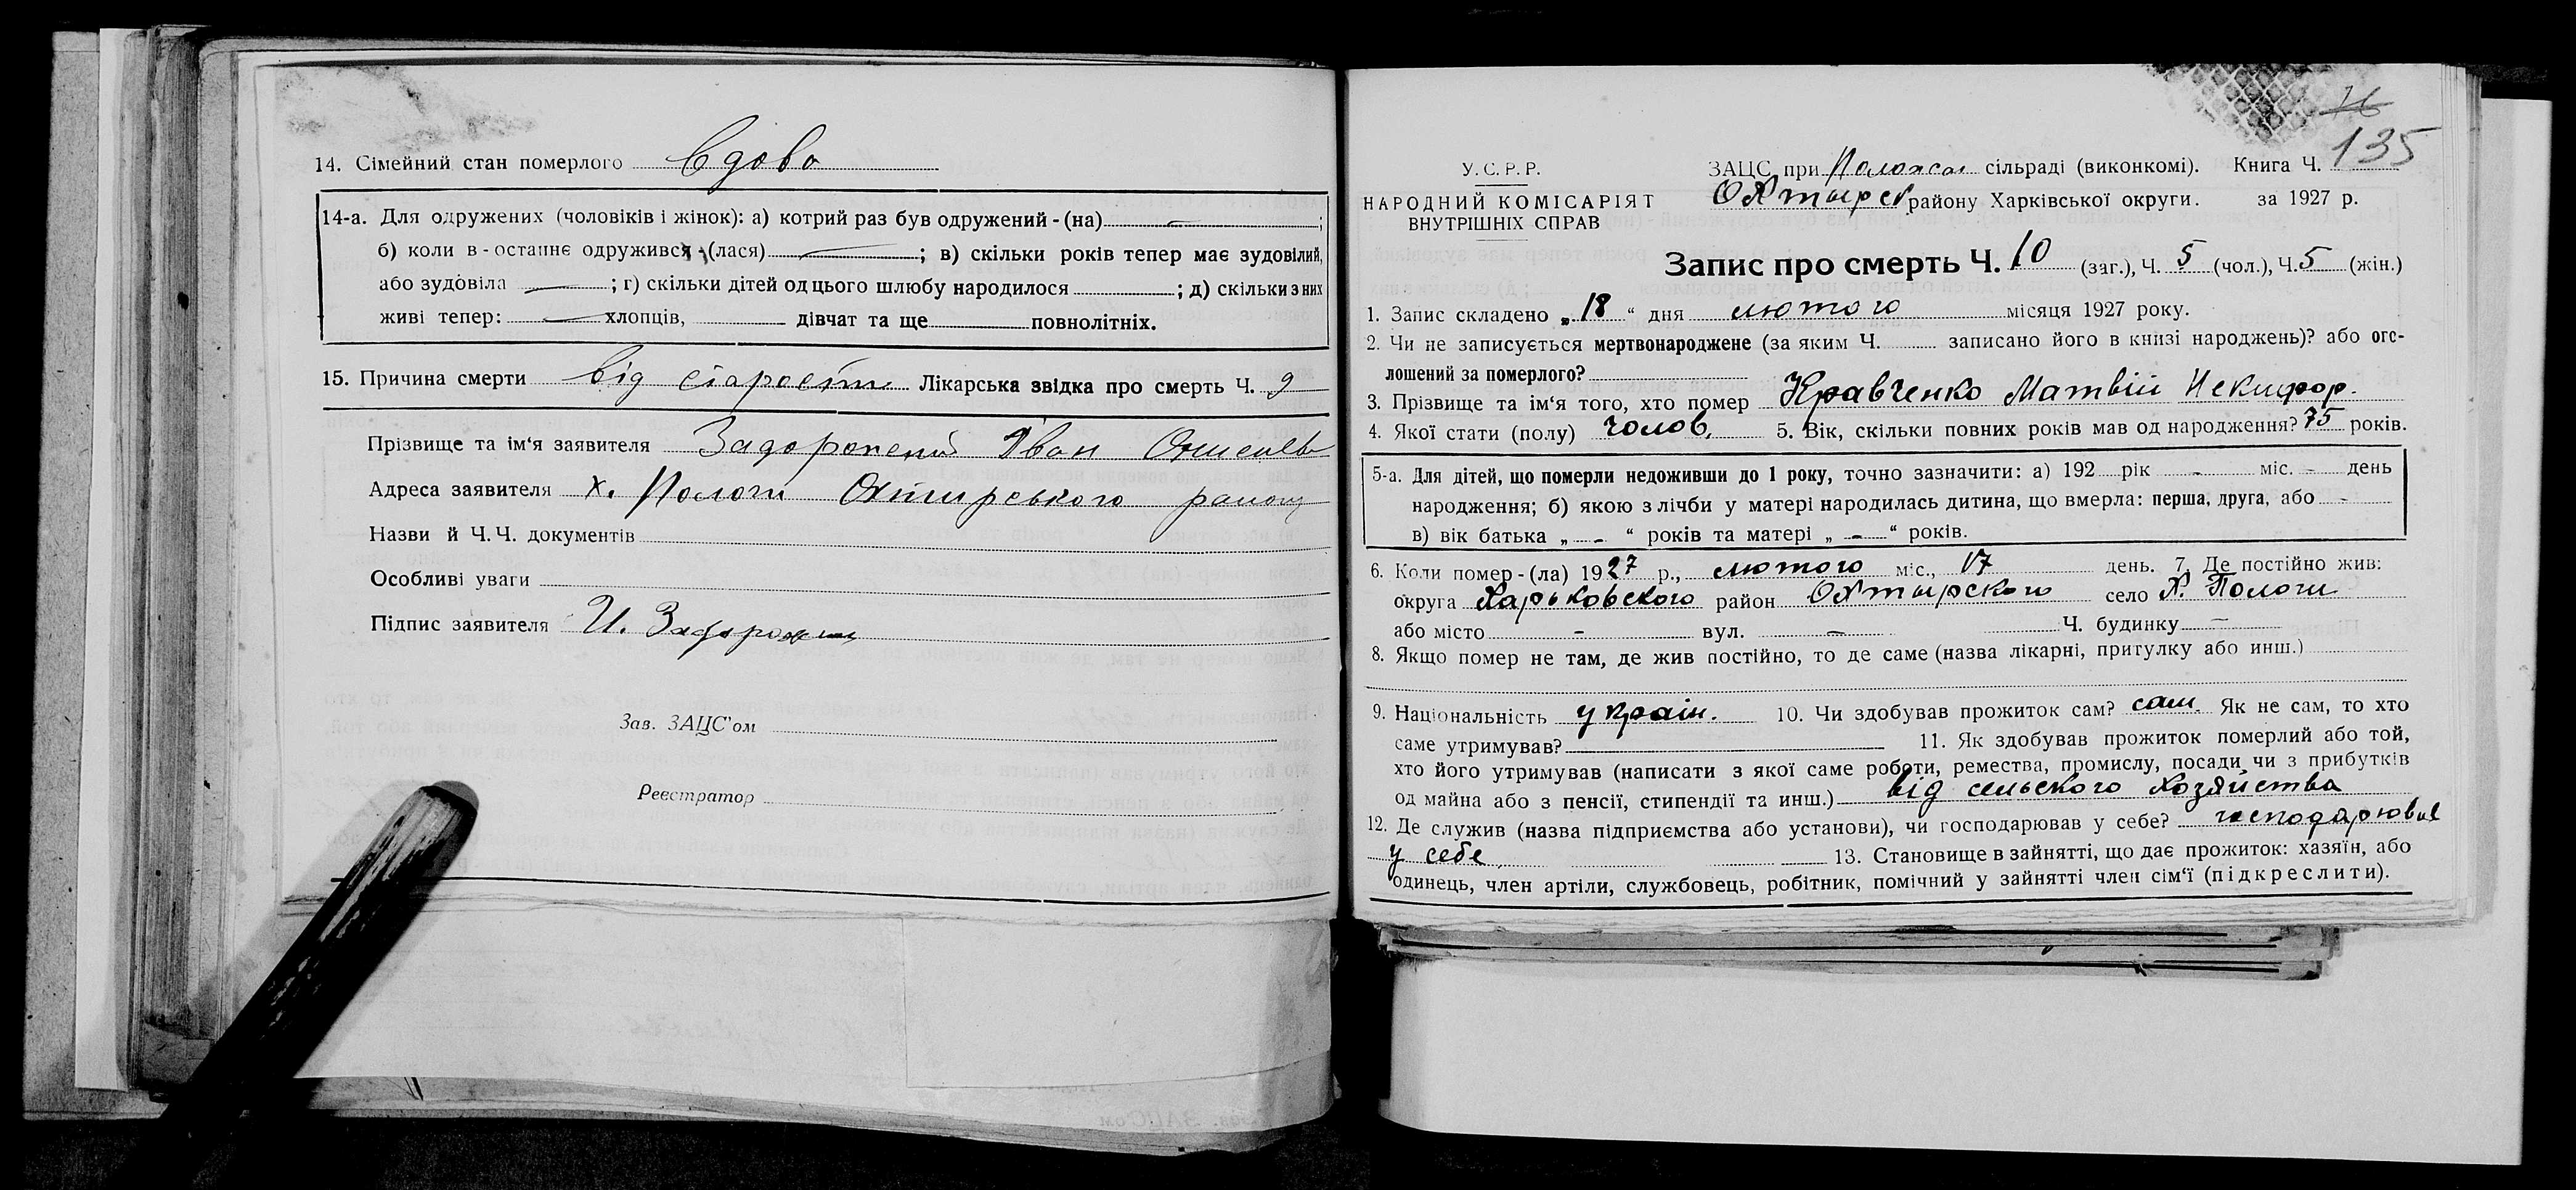 14. Сімейний стан померлого Вдова
14-а. Для одружених (чоловіків і жінок): а) котрий раз був одружений - (на) — ;
б) коли в - останнє одружився - (лася) — ; в) скільки років тепер має зудовілий,
або зудовіла — ; г) скільки дітей од цього шлюбу народилося ; д) скільки з них
живі тепер: — хлопців, дівчат та ще повнолітніх.
15. Причина смерти від старости Лікарська звідка про смерть Ч. 9
Прізвище та ім'я заявителя Задорожний Іван
Адреса заявителя х. Пологи Охтирського району
Назви й Ч. Ч. документів
Особливі уваги
Підпис заявителя И. Задорожний
Зав. ЗАЦС'ом
Реєстратор
76
135
У. С. Р. Р.
НАРОДНИЙ КОМІСАРІЯТ
ВНУТРІШНІХ СПРАВ
ЗАЦС при сільраді (виконкомі). Книга Ч.
Охтырск району Харківської округи. за 1927 р.
Запис про смерть Ч. 10 (заг.), Ч. 5 (чол.), Ч. 5 (жін.)
1. Запис складено „ 18 “ дня лютого місяця 1927 року.
2. Чи не записується мертвонароджене (за яким Ч. записано його в книзі народжень)? або ого-
лошений за померлого?
3. Прізвище та ім'я того, хто помер Кравченко Матвій Некифор.
4. Якої стати (полу) чолов. 5. Вік, скільки повних років мав од народження? 75 років.
5-а. Для дітей, що померли недоживши до 1 року, точно зазначити: а) 192 рік - міс. - день
народження; б) якою з лічби у матері народилась дитина, що вмерла: перша, друга, або -
в) вік батька „ - “ років та матері „ - “ років.
6. Коли помер - (ла) 1927 р., лютого міс., 17 день. 7. Де постійно жив:
округа Харьковского район Охтырского село Х. Пологи
або місто - вул. - Ч. будинку -
8. Якщо помер не там, де жив постійно, то де саме (назва лікарні, притулку або инш.)
9. Національність україн. 10. Чи здобував прожиток сам? сам. Як не сам, то хто
саме утримував? 11. Як здобував прожиток померлий або той,
хто його утримував (написати з якої саме роботи, ремества, промислу, посади чи з прибутків
од майна або з пенсії, стипендії та инш.) від сельского хозяйства
12. Де служив (назва підприємства або установи), чи господарював у себе? господарював
у себе 13. Становище в зайнятті, що дає прожиток: хазяїн, або
одинець, член артіли, службовець, робітник, помічний у зайнятті член сім'ї (підкреслити).